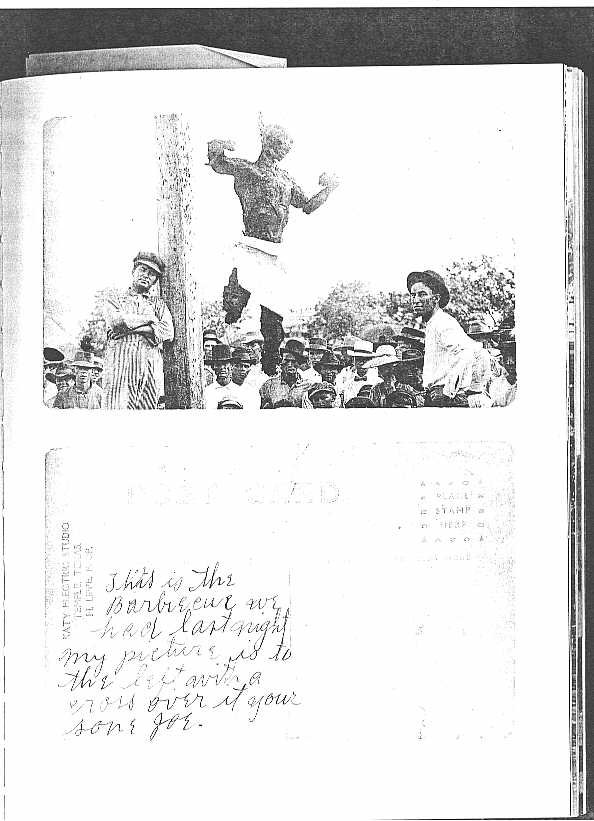 POST CARD
PLACE
STAMP
HERE
KATY ELECTRIC STUDIO
TEMPLE TEXAS.
This is the
Barbecue we
had last night
my picture is to
the left with a
cross over it your
sone Joe.